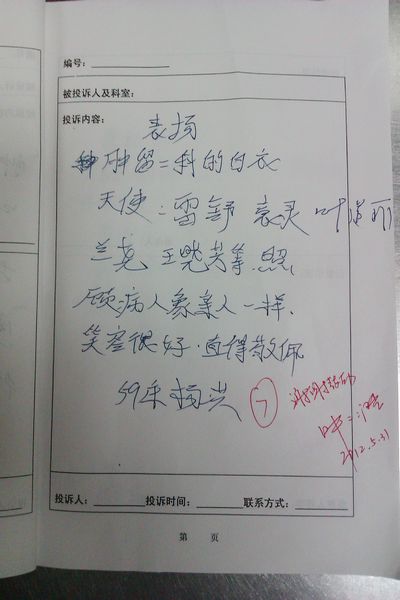 编号：
被投诉人及科室：
投诉内容：
表扬
肿留二科的白衣
天使：雷舒 袁灵 叶
兰尧 王晓芳等.照
顾病人象亲人一样.
笑容很好.直得敬佩
59床 杨兴
7
2012.5.31
投诉人： 投诉时间： 联系方式：
第 页